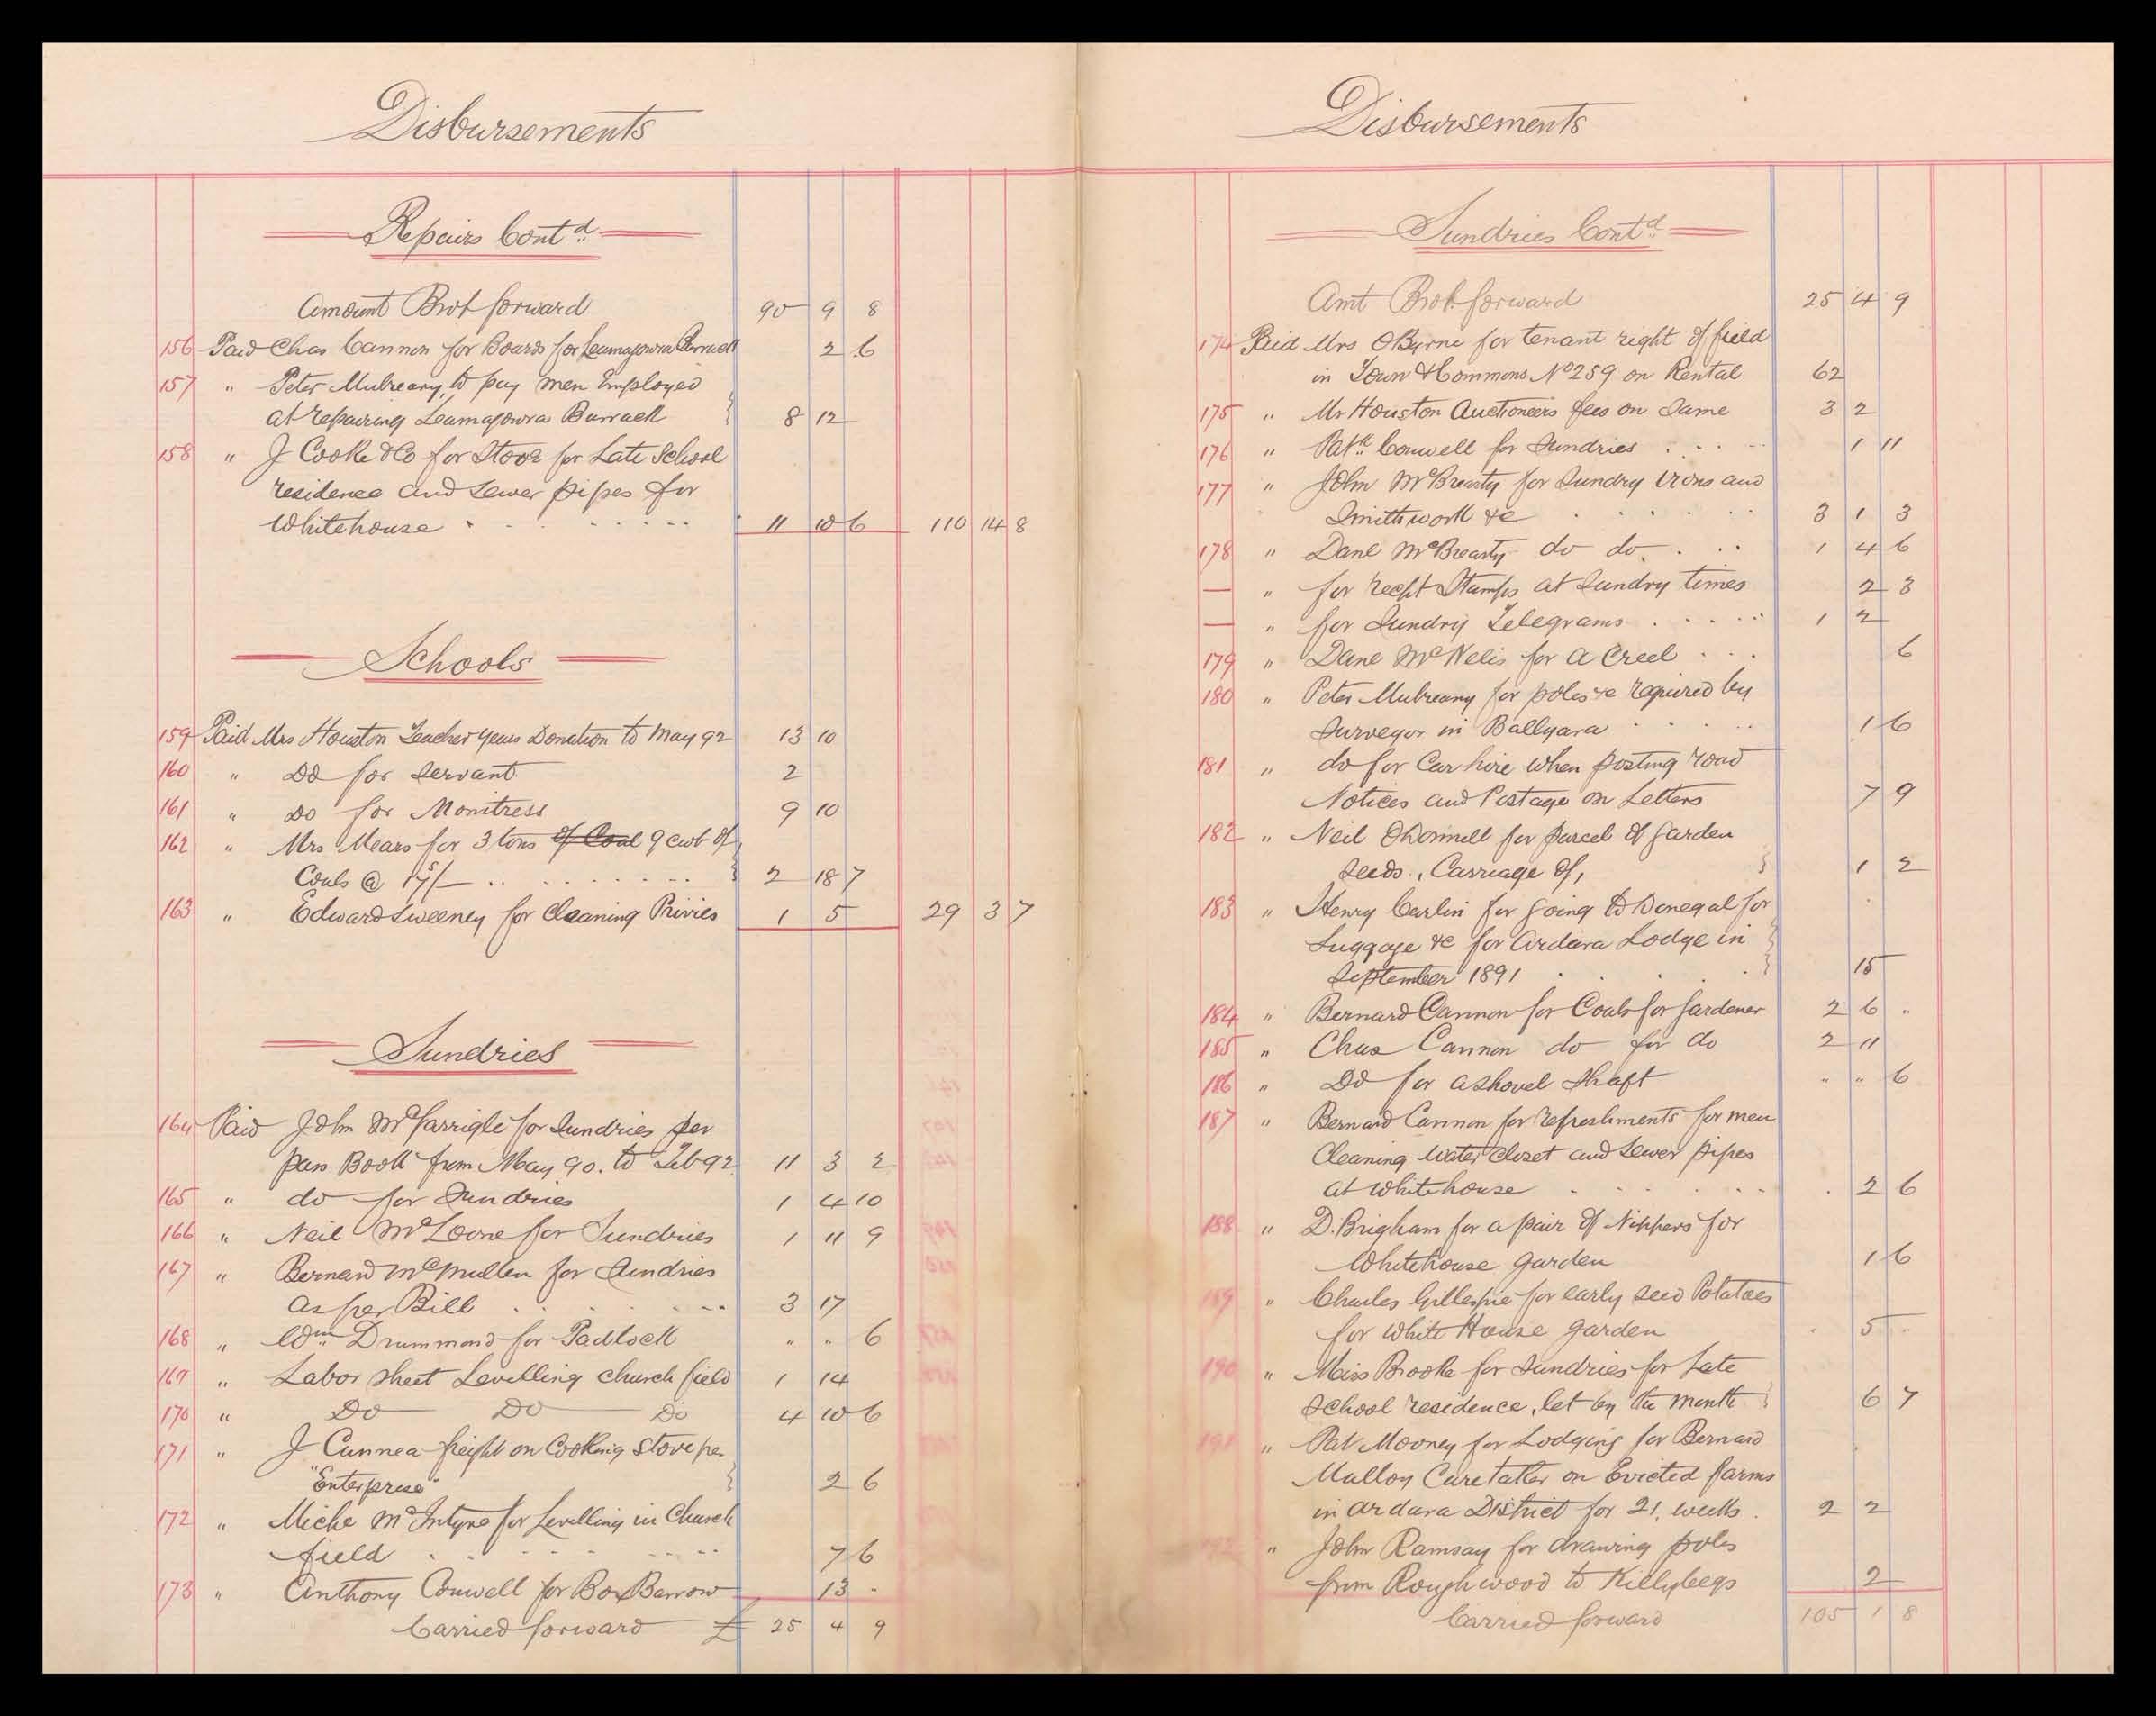 Disbursements
Repairs Contd
Amount Brot forward 90 9 8
156 Paid Chas Cannon for Boards for Leamagowra Barrack 2 6
157 " Peter Mulreany, to pay men Employed
at repairing Leamagowra Barrack 8 12
158 " J Cooke & Co for Stove for Late School
residence and Sewer pipes for
Whitehouse 11 10 6 110 14 8
Schools
159 Paid Mrs Houston Teacher years Donation to May 92 13 10
160 " Do for Servant 2
161 " Do for Monitress 9 10
162 " Mrs Mears for 3 tons of Coal 9 cwt of
Coals @ 17/- 2 18 7
163 " Edward Sweeney for Cleaning Privies 1 5 29 3 7
Sundries
164 Paid John McGarrigle for Sundries per
pass Book from May 90. to Feb 92 11 3 2
165 " do for Sundries 1 4 10
166 " Neil McLoone for Sundries 1 11 9
167 " Bernard McMullen for Sundries
as per Bill 3 17
168 " Wm Drummond for Padlock " " 6
169 " Labor sheet Levelling church field 1 14
170 " Do Do Do 4 10 6
171 " J Cunnea freight on Cooking Stove per
"Enterprise" 2 6
172 " Miche McIntyre for Levelling in Church
field 7 6
173 " Anthony Conwell for Box Barrow 13 -
Carried forward £ 25 4 9
Disbursements
Sundries Contd
Amt Brot. forward 25 4 9
174 Paid Mrs OByrne for tenant right of field
in Town & Commons No 259 on Rental 62
175 " Mr Houston Auctioneers fees on Same 3 2
176 " Patk Conwell for Sundries 1 11
177 " John McBrearty for Sundry Irons and
Smiths work &c 3 1 3
178 " Danl McBrearty do do 1 4 6
— " for recpt Stamps at Sundry times 2 3
— " for Sundry Telegrams 1 2
179 " Danl McNelis for a Creel 6
180 " Peter Mulreany for poles &c required by
Surveyor in Ballyara 1 6
181 " do for Car hire when posting road
Notices and Postage on Letters 7 9
182 " Neil ODonnell for parcel of Garden
Seeds, Carriage of, 1 2
183 " Henry Carlin for going to Donegal for
Luggage &c for Ardara Lodge in
September 1891 15
184 " Bernard Cannon for Coals for Gardener 2 6 "
185 " Chas Cannon do for do 2 11
186 " Do for a Shovel Shaft " " 6
187 " Bernard Cannon for refreshments for men
Cleaning water closet and Sewer pipes
at Whitehouse 2 6
188 " D. Brigham for a pair of Nippers for
Whitehouse garden 1 6
189 " Charles Gillespie for early seed Potatoes
for White House garden 5
190 " Miss Brooke for Sundries for Late
School residence, let by the month 6 7
191 " Pat Mooney for Lodging for Bernard
Mulloy Caretaker on Evicted farms
in Ardara District for 21. weeks 2 2
192 " John Ramsay for drawing poles
from Roughwood to Killybegs 2
Carried forward 105 1 8